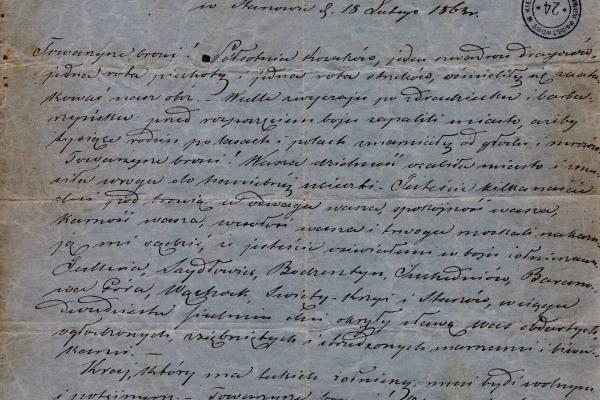 w Staszowie d. 18 Lutego 1863 r.
24
Towarzysze broni! Półsotnia kozaków, jeden szwadron dragonów,
jedna rota piechoty i jedna rota strzelców, ośmieliły się zaata-
kować nasz obóz. – Wedle zwyczaju po zdradziecku i barba-
rzyńsku przed rozpoczęciem boju zapalili miasto, ażeby
tysiące rodzin po lasach i polach zmarniały od głodu i mrozu.
Towarzysze broni! Wasza dzielność ocaliła miasto i zmu-
siła wroga do haniebnej ucieczki. – Jesteście kilkanaście
dni pod bronią, a odwaga wasza, spokojność wasza,
karność wasza, wasza i trwoga moskali nakazu-
ją mi sądzić, że jesteście w boju żołnierzami.
Jedlnia, Szydłowiec, Bodzentyn, Suchedniów, Barano-
wa Góra, Wąchock, Święty-Krzyż i Staszów, w ciągu
dwudziestu siedmiu dni okryły sławą Was obdartych,
wygłodzonych, zziębniętych i strudzonych marszami i biwa-
kami. –
Kraj, który ma takich żołnierzy, musi być wolnym
i potężnym. – Towarzysze broni!